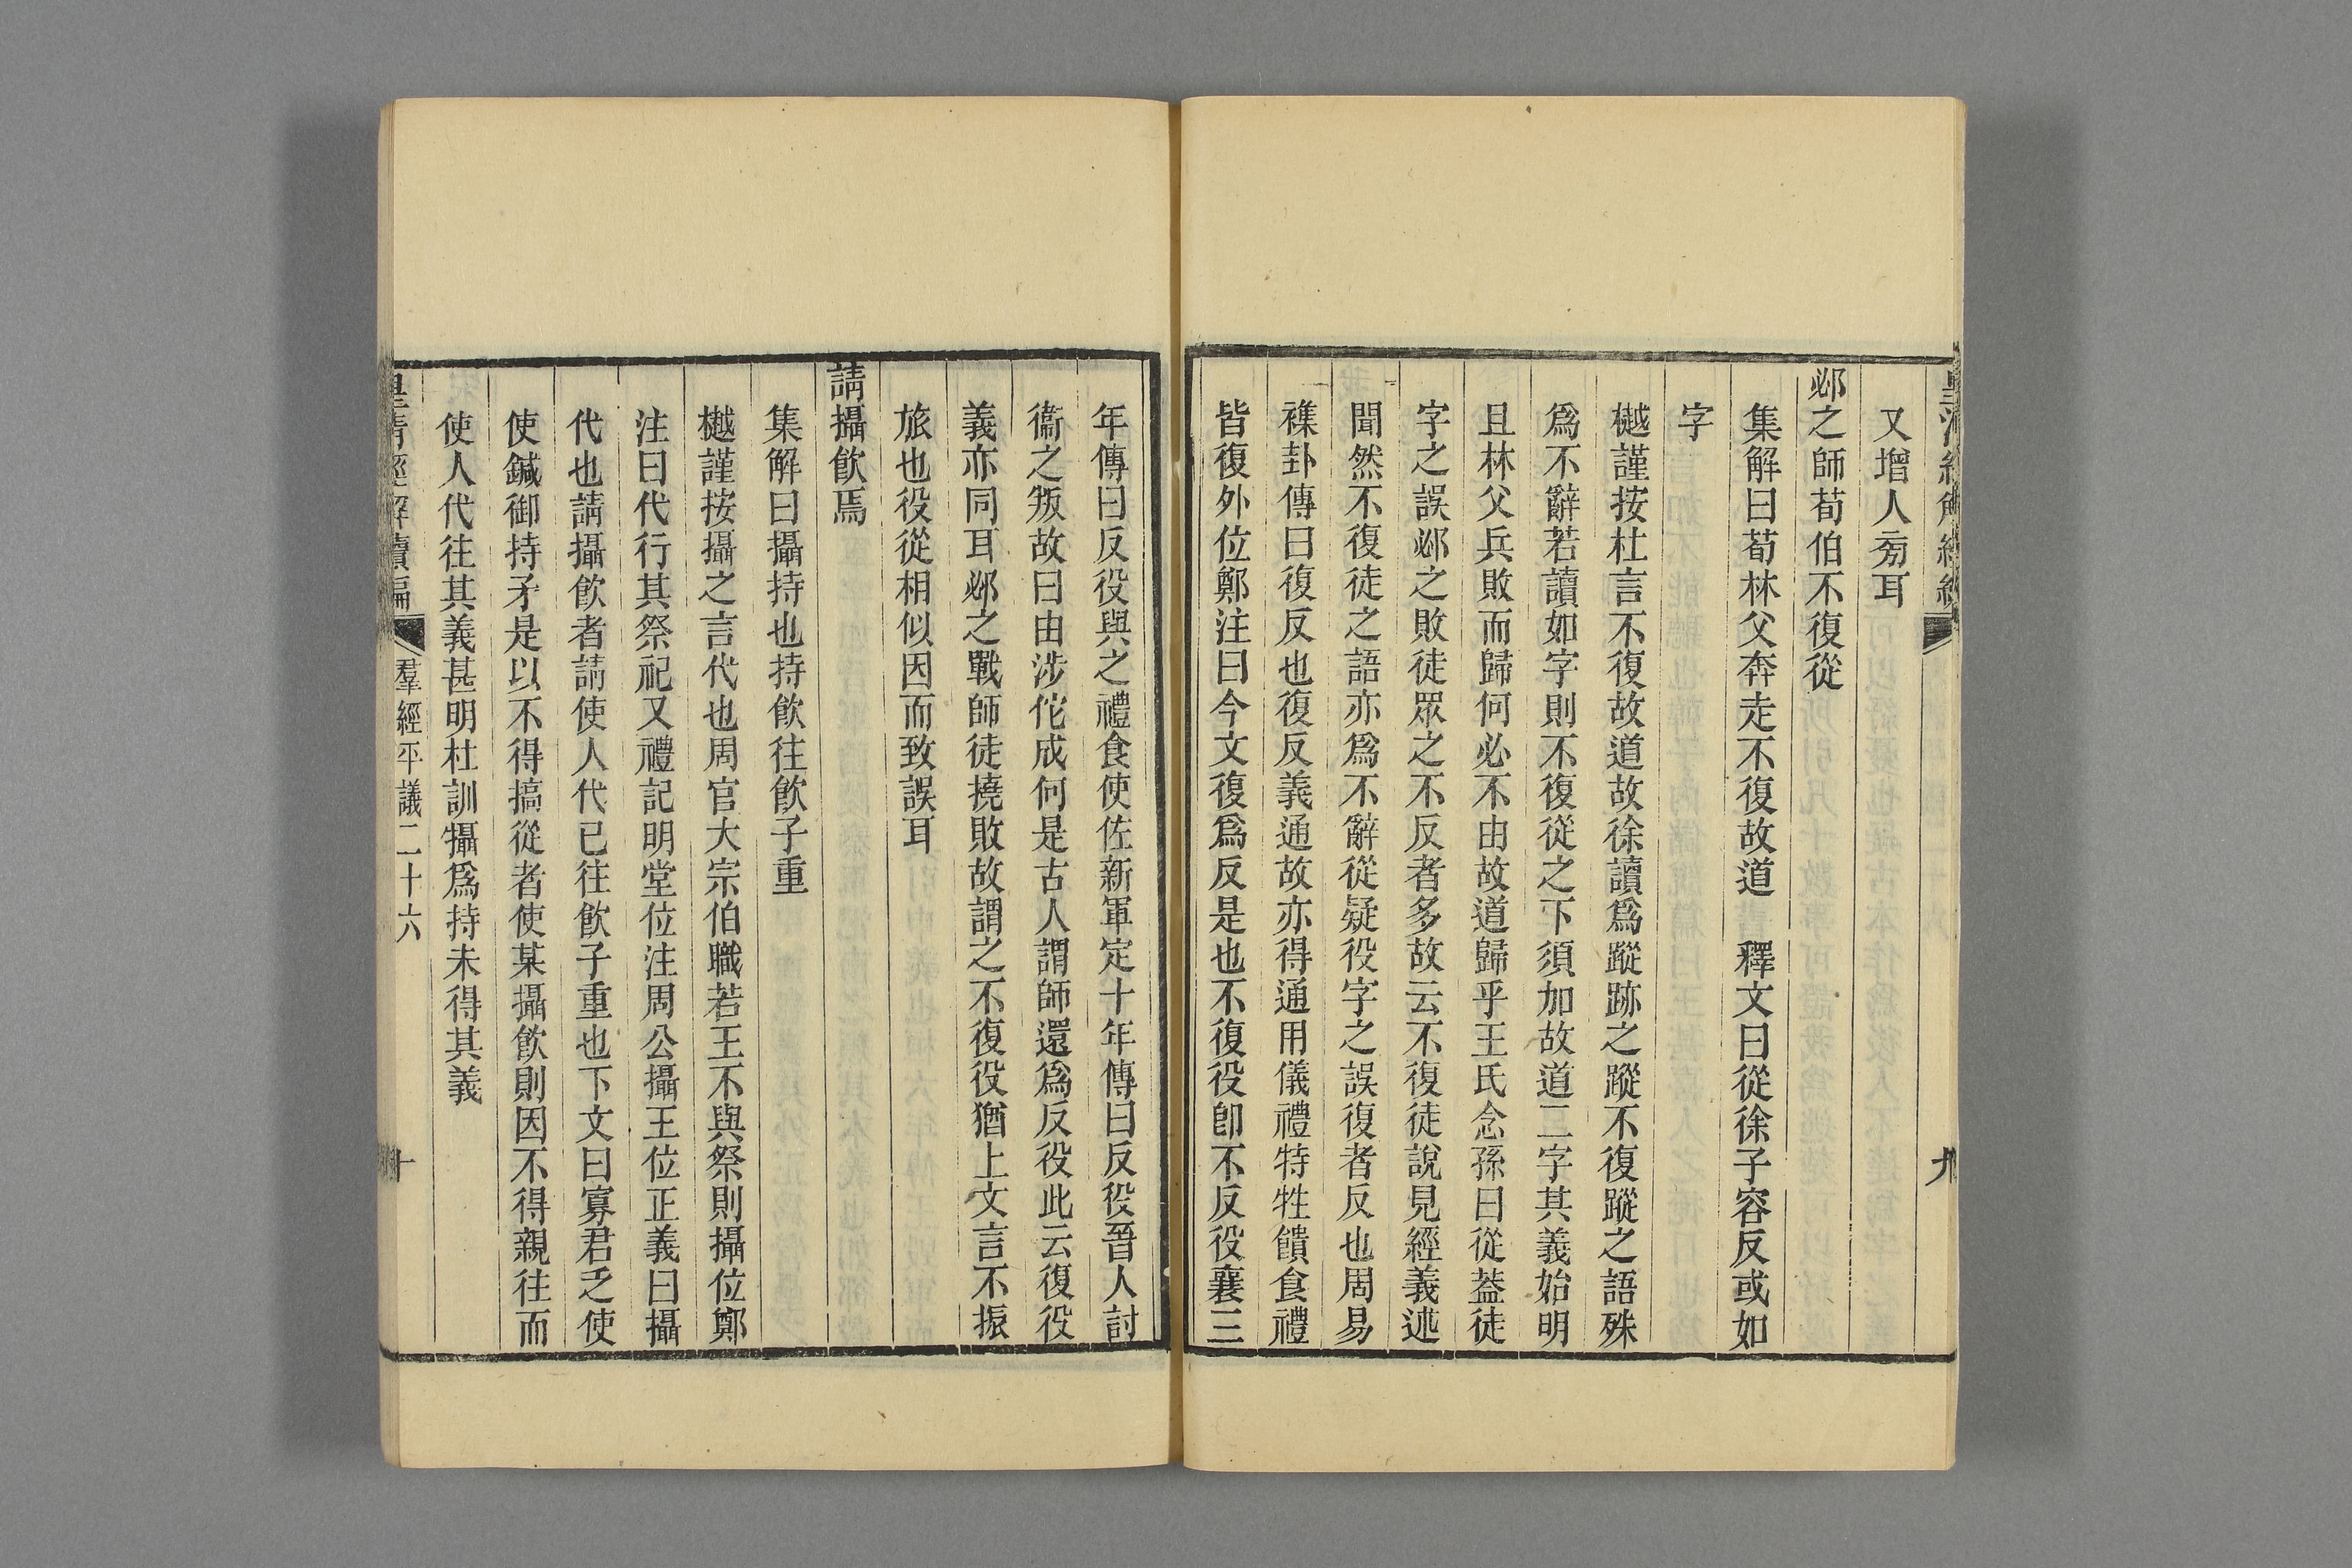 又增人旁耳
邲之師荀伯不復從
集解曰荀林父奔走不復故道　釋文曰從徐子容反或如
字
樾謹按杜言不復故道故徐讀爲蹤跡之蹤不復蹤之語殊
爲不辭若讀如字則不復從之下須加故道二字其義始明
且林父兵敗而歸何必不由故道歸乎王氏念孫曰從葢徒
字之誤邲之敗徒眾之不反者多故云不復徒說見經義述
聞然不復徒之語亦爲不辭從疑役字之誤復者反也周易
襍卦傳曰復反也復反義通故亦得通用儀禮特牲饋食禮
皆復外位鄭注曰今文復爲反是也不復役卽不反役襄三
年傳曰反役與之禮食使佐新軍定十年傳曰反役晉人討
衞之叛故曰由涉佗成何是古人謂師還爲反役此云復役
義亦同耳邲之戰師徒撓敗故謂之不復役猶上文言不振
旅也役從相似因而致誤耳
請攝飮焉
集解曰攝持也持飮往飮子重
樾謹按攝之言代也周官大宗伯職若王不與祭則攝位鄭
注曰代行其祭祀又禮記明堂位注周公攝王位正義曰攝
代也請攝飮者請使人代已往飮子重也下文曰寡君乏使
使鍼御持矛是以不得搞從者使某攝飮則因不得親往而
使人代往其義甚明杜訓攝爲持未得其義
皇清經解續編　羣經平議二十六　十